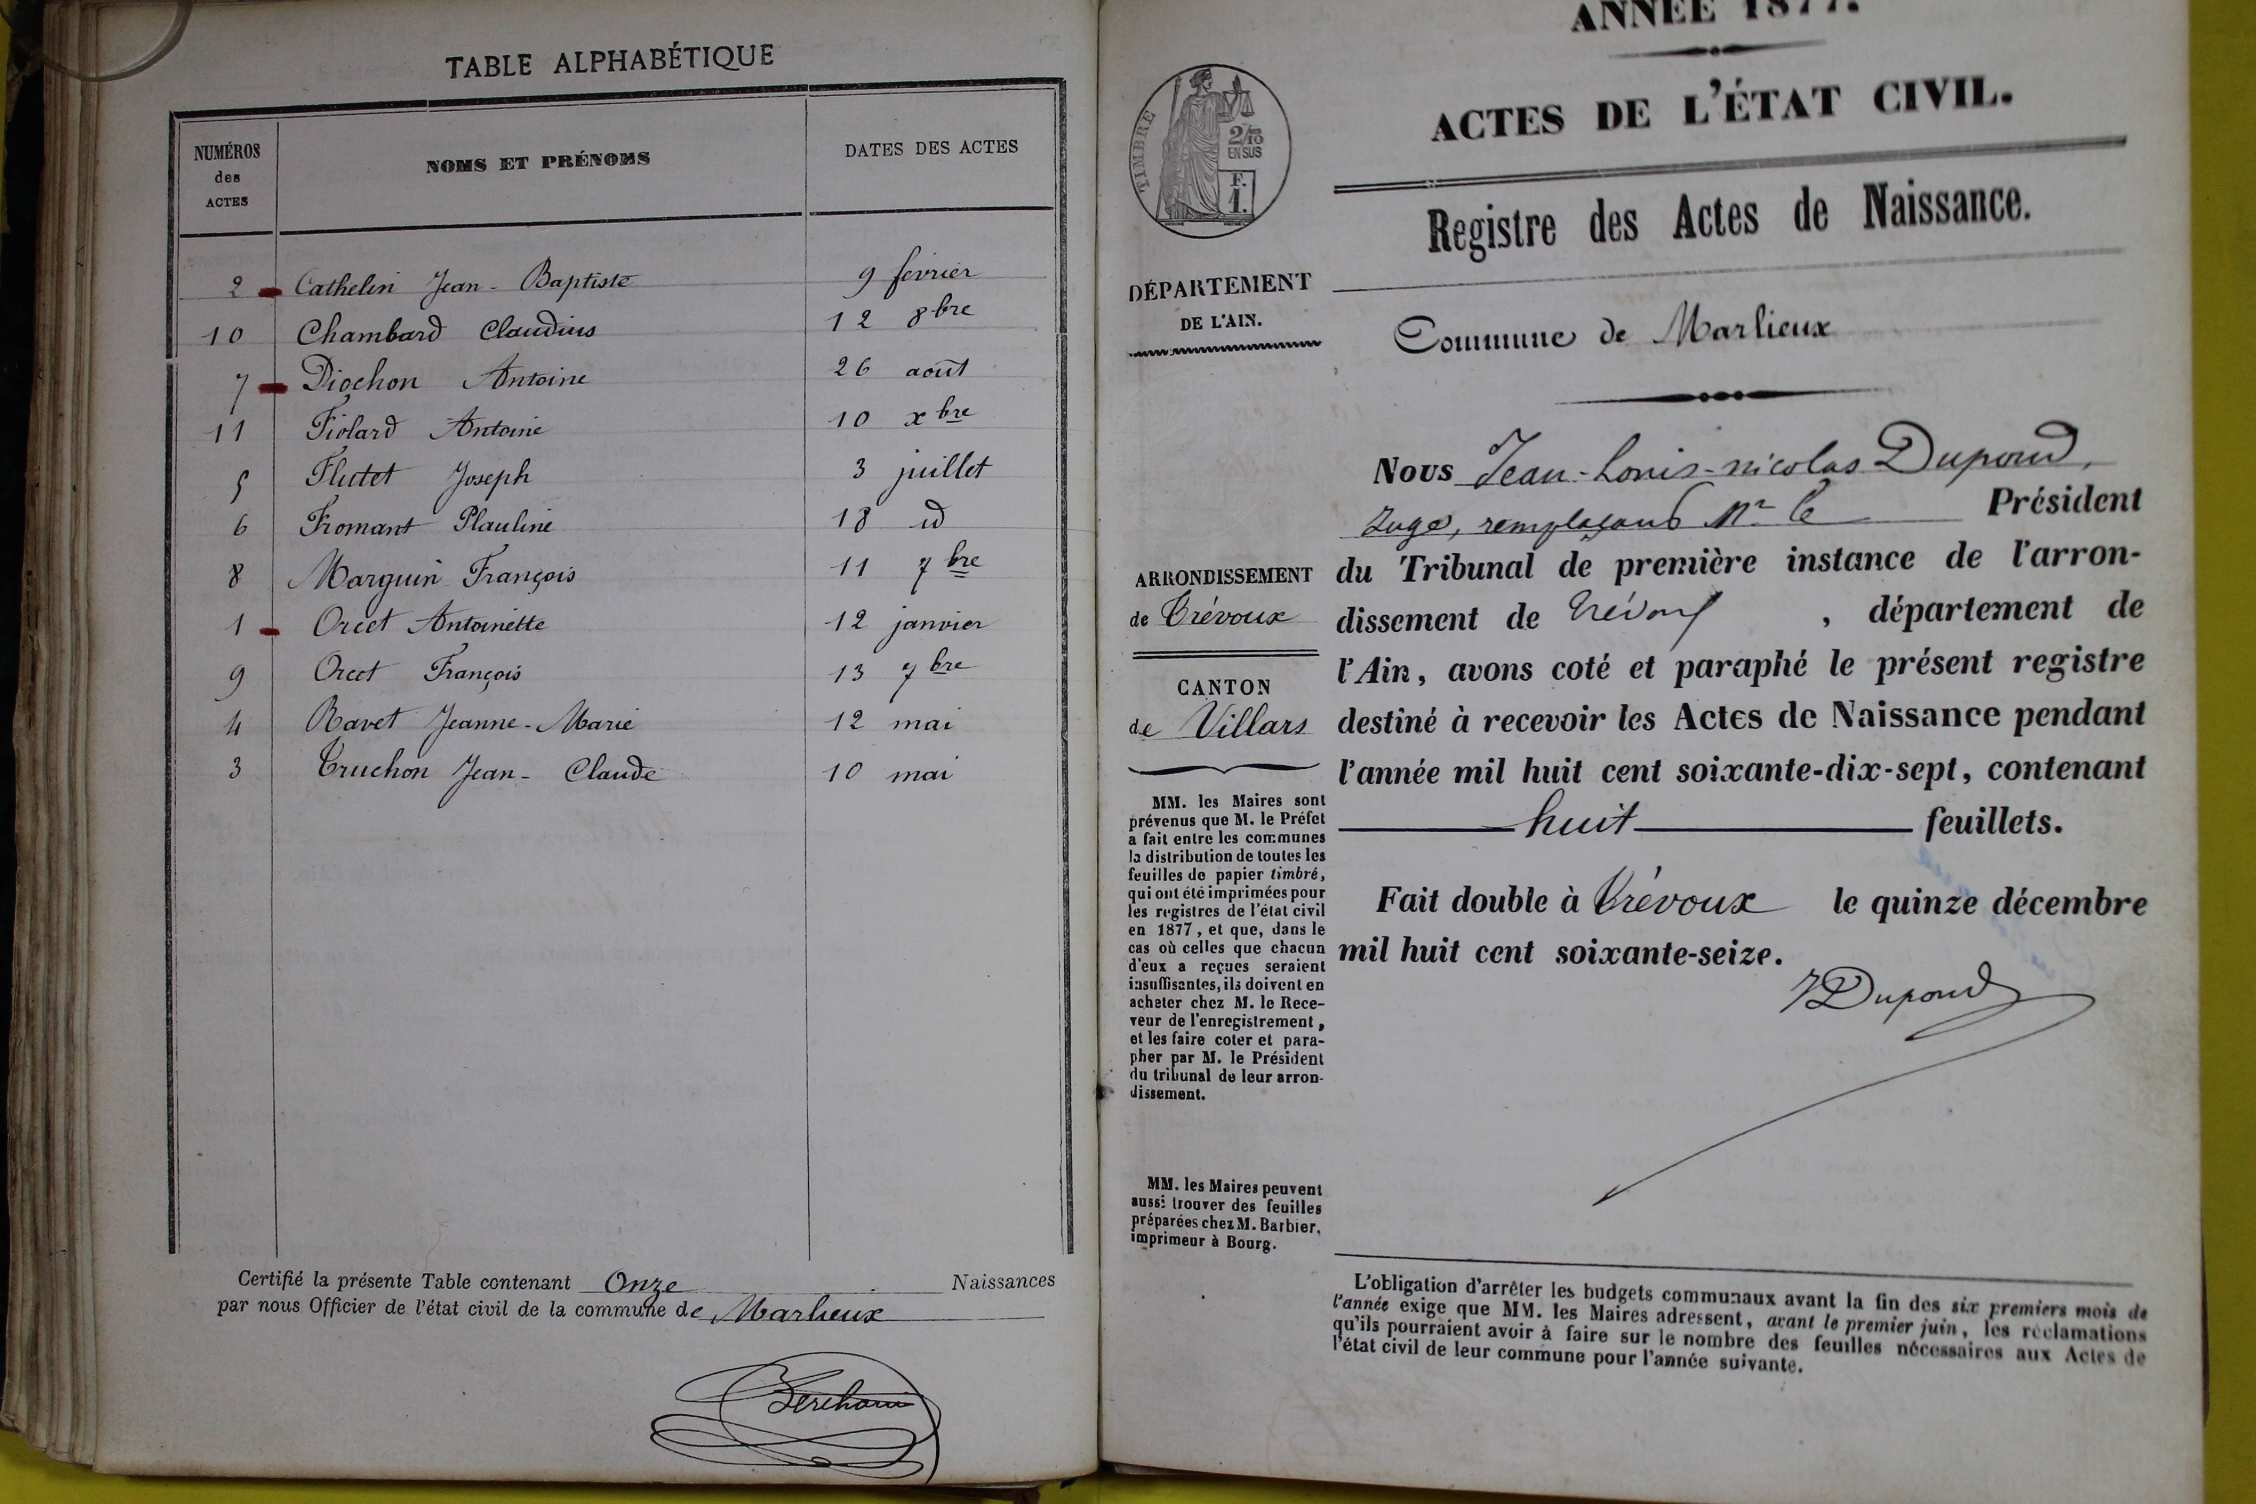 TABLE ALPHABÉTIQUE
NUMÉROS
des
ACTES
NOMS ET PRÉNOMS
DATES DES ACTES
2 Cathelin Jean-Baptiste 9 février
10 Chambard Claudius 12 8bre
7 Diochon Antoine 26 août
11 Fiolard Antoine 10 xbre
5 Flutet Joseph 3 juillet
6 Fromant Plauline 18 id
8 Marguin François 11 7bre
1 Orcet Antoinette 12 janvier
9 Orcet François 13 7bre
4 Ravet Jeanne-Marie 12 mai
3 Truchon Jean-Claude 10 mai
Certifié la présente Table contenant Onze Naissances
par nous Officier de l'état civil de la commune de Marlieux
ANNÉE 1877.
ACTES DE L'ÉTAT CIVIL.
TIMBRE
2/10
EN SUS
F.
1.
Registre des Actes de Naissance.
DÉPARTEMENT
DE L'AIN.
Commune de Marlieux
Nous Jean-Louis-Nicolas Dupond,
Juge, remplaçant Mr le Président
du Tribunal de première instance de l'arron-
dissement de Trévoux, département de
l'Ain, avons coté et paraphé le présent registre
destiné à recevoir les Actes de Naissance pendant
l'année mil huit cent soixante-dix-sept, contenant
huit feuillets.
Fait double à Trévoux le quinze décembre
mil huit cent soixante-seize.
Dupond
ARRONDISSEMENT
de Trévoux
CANTON
de Villars
MM. les Maires sont
prévenus que M. le Préfet
a fait entre les communes
la distribution de toutes les
feuilles de papier timbré,
qui ont été imprimées pour
les registres de l'état civil
en 1877, et que, dans le
cas où celles que chacun
d'eux a reçues seraient
insuffisantes, ils doivent en
acheter chez M. le Rece-
veur de l'enregistrement,
et les faire coter et para-
pher par M. le Président
du tribunal de leur arron-
dissement.
MM. les Maires peuvent
aussi trouver des feuilles
préparées chez M. Barbier,
imprimeur à Bourg.
L'obligation d'arrêter les budgets communaux avant la fin des six premiers mois de
l'année exige que MM. les Maires adressent, avant le premier juin, les réclamations
qu'ils pourraient avoir à faire sur le nombre des feuilles nécessaires aux Actes de
l'état civil de leur commune pour l'année suivante.